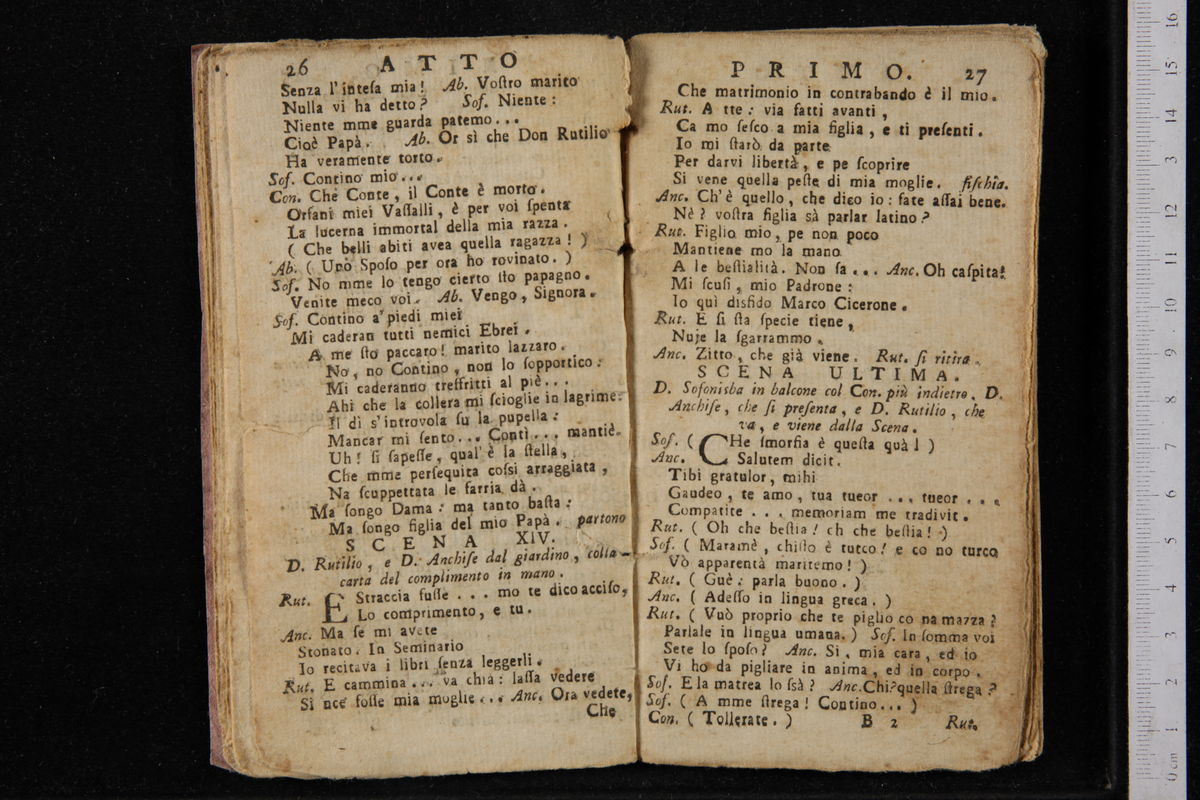 26 ATTO
Senza l'inteſa mia! Ab. Voſtro marito
Nulla vi ha detto? Sof. Niente:
Niente mme guarda patemo...
Cioè Papà. Ab. Or sì che Don Rutilio
Ha veramente torto.
Sof. Contino mio...
Con. Che Conte, il Conte è morto.
Orfani miei Vaſſalli, è per voi ſpenta
La lucerna immortal della mia razza.
( Che belli abiti avea quella ragazza! )
Ab. ( Uno Spoſo per ora ho rovinato. )
Sof. No mme lo tengo cierto ſto papagno.
Venite meco voi. Ab. Vengo, Signora.
Sof. Contino a' piedi miei
Mi caderan tutti nemici Ebrei.
A me ſto paccaro! marito lazzaro.
No, no Contino, non lo ſopportico:
Mi caderanno treffritti al piè...
Ahi che la collera mi ſcioglie in lagrime:
Il dì s'introvola ſu la pupella:
Mancar mi ſento... Conti... mantiè.
Uh! ſi ſapeſſe, qual'è la ſtella,
Che mme perſequita coſsi arraggiata,
Na ſcuppettata le farria dà.
Ma ſongo Dama: ma tanto baſta:
Ma ſongo figlia del mio Papà. partono
SCENA XIV.
D. Rutilio, e D. Anchiſe dal giardino, colla
carta del complimento in mano.
Rut. E Straccia fuſſe... mo te dico acciſo,
Lo comprimento, e tu.
Anc. Ma ſe mi avete
Stonato. In Seminario
Io recitava i libri ſenza leggerli.
Rut. E cammina... va chià: laſſa vedere
Sì nce foſſe mia moglie... Anc. Ora vedete,
Che
PRIMO. 27
Che matrimonio in contrabando è il mio.
Rut. A tte: via fatti avanti,
Ca mo feſco a mia figlia, e ti preſenti.
Io mi ſtarò da parte
Per darvi libertà, e pe ſcoprire
Si vene quella peſte di mia moglie. fiſchia.
Anc. Ch'è quello, che dico io: fate aſſai bene.
Nè? voſtra figlia sà parlar latino?
Rut. Figlio mio, pe non poco
Mantiene mo la mano
A le beſtialità. Non ſa... Anc. Oh caſpita!
Mi ſcuſi, mio Padrone:
Io quì disfido Marco Cicerone.
Rut. E ſi ſta ſpecie tiene,
Nuje la ſgarrammo.
Anc. Zitto, che già viene. Rut. ſi ritira.
SCENA ULTIMA.
D. Sofonisba in balcone col Con. più indietro. D.
Anchiſe, che ſi preſenta, e D. Rutilio, che
va, e viene dalla Scena.
Sof. ( CHe ſmorfia è queſta quà! )
Anc. Salutem dicit.
Tibi gratulor, mihi
Gaudeo, te amo, tua tueor... tueor...
Compatite... memoriam me tradivit.
Rut. ( Oh che beſtia! oh che beſtia! )
Sof. ( Maramè, chiſto è turco! e co no turco
Vò apparentà maritemo! )
Rut. ( Guè: parla buono. )
Anc. ( Adeſſo in lingua greca. )
Rut. ( Vuò proprio che te piglio co na mazza?
Parlale in lingua umana. ) Sof. In ſomma voi
Sete lo ſpoſo? Anc. Sì, mia cara, ed io
Vi ho da pigliare in anima, ed in corpo.
Sof. E la matrea lo ſsà? Anc. Chi? quella ſtrega?
Sof. ( A mme ſtrega! Contino... )
Con. ( Tollerate. ) B 2 Rut.
0 cm 1 2 3 4 5 6 7 8 9 10 11 12 13 14 15 16